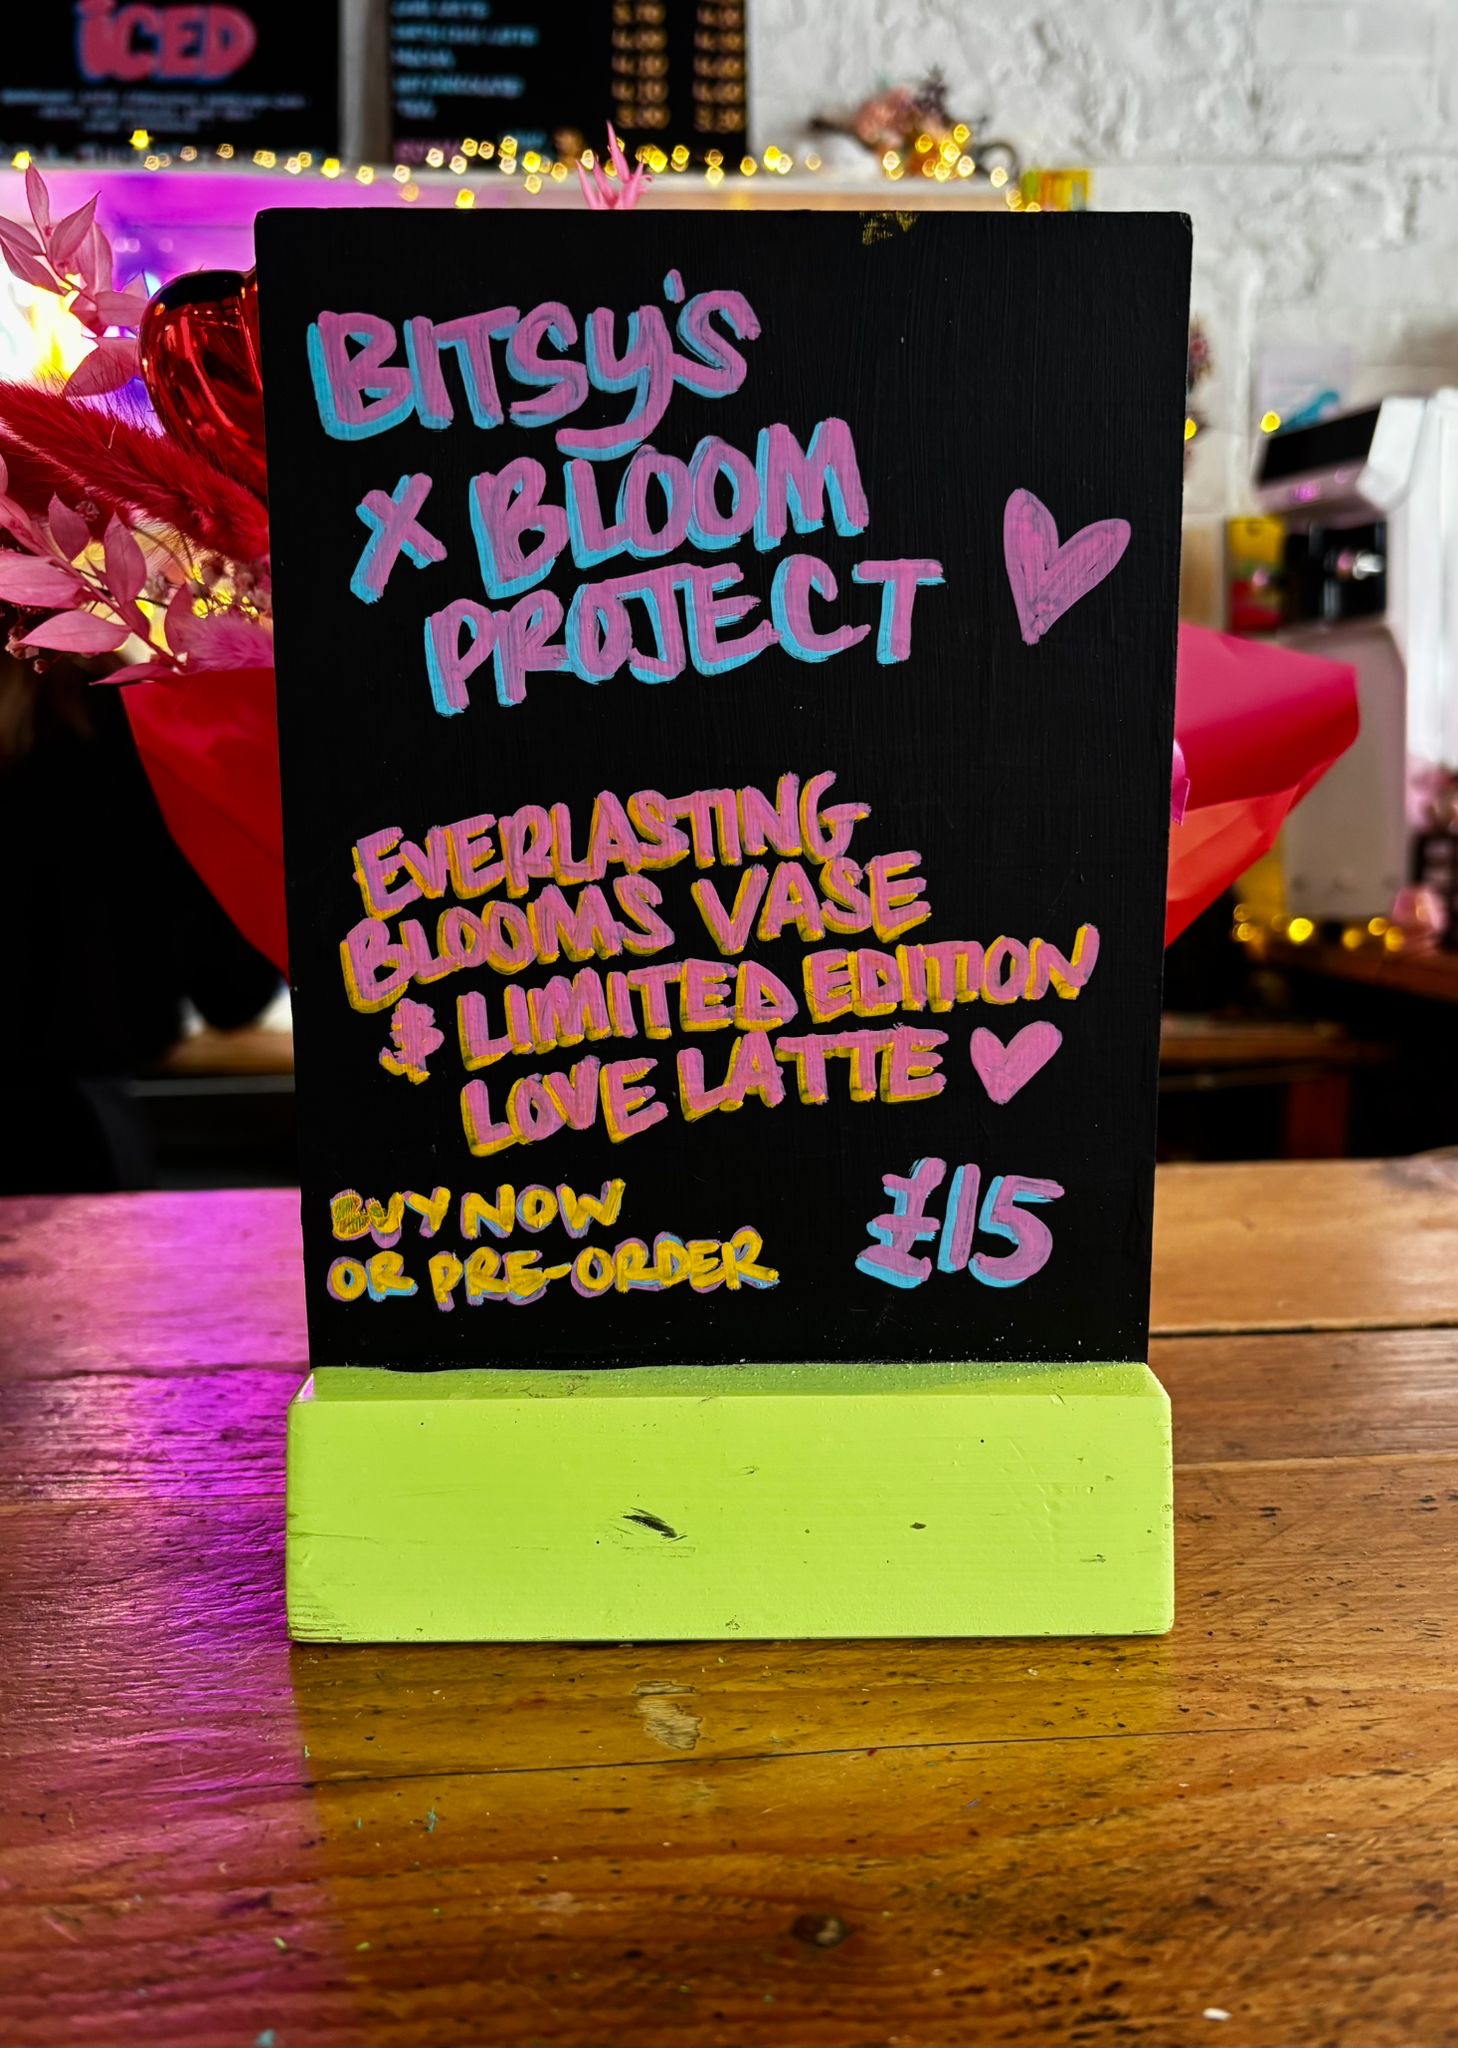 ICED
BITSY'S
X BLOOM
PROJECT
EVERLASTING
BLOOMS VASE
& LIMITED EDITION
LOVE LATTE
BUY NOW
OR PRE-ORDER
£15